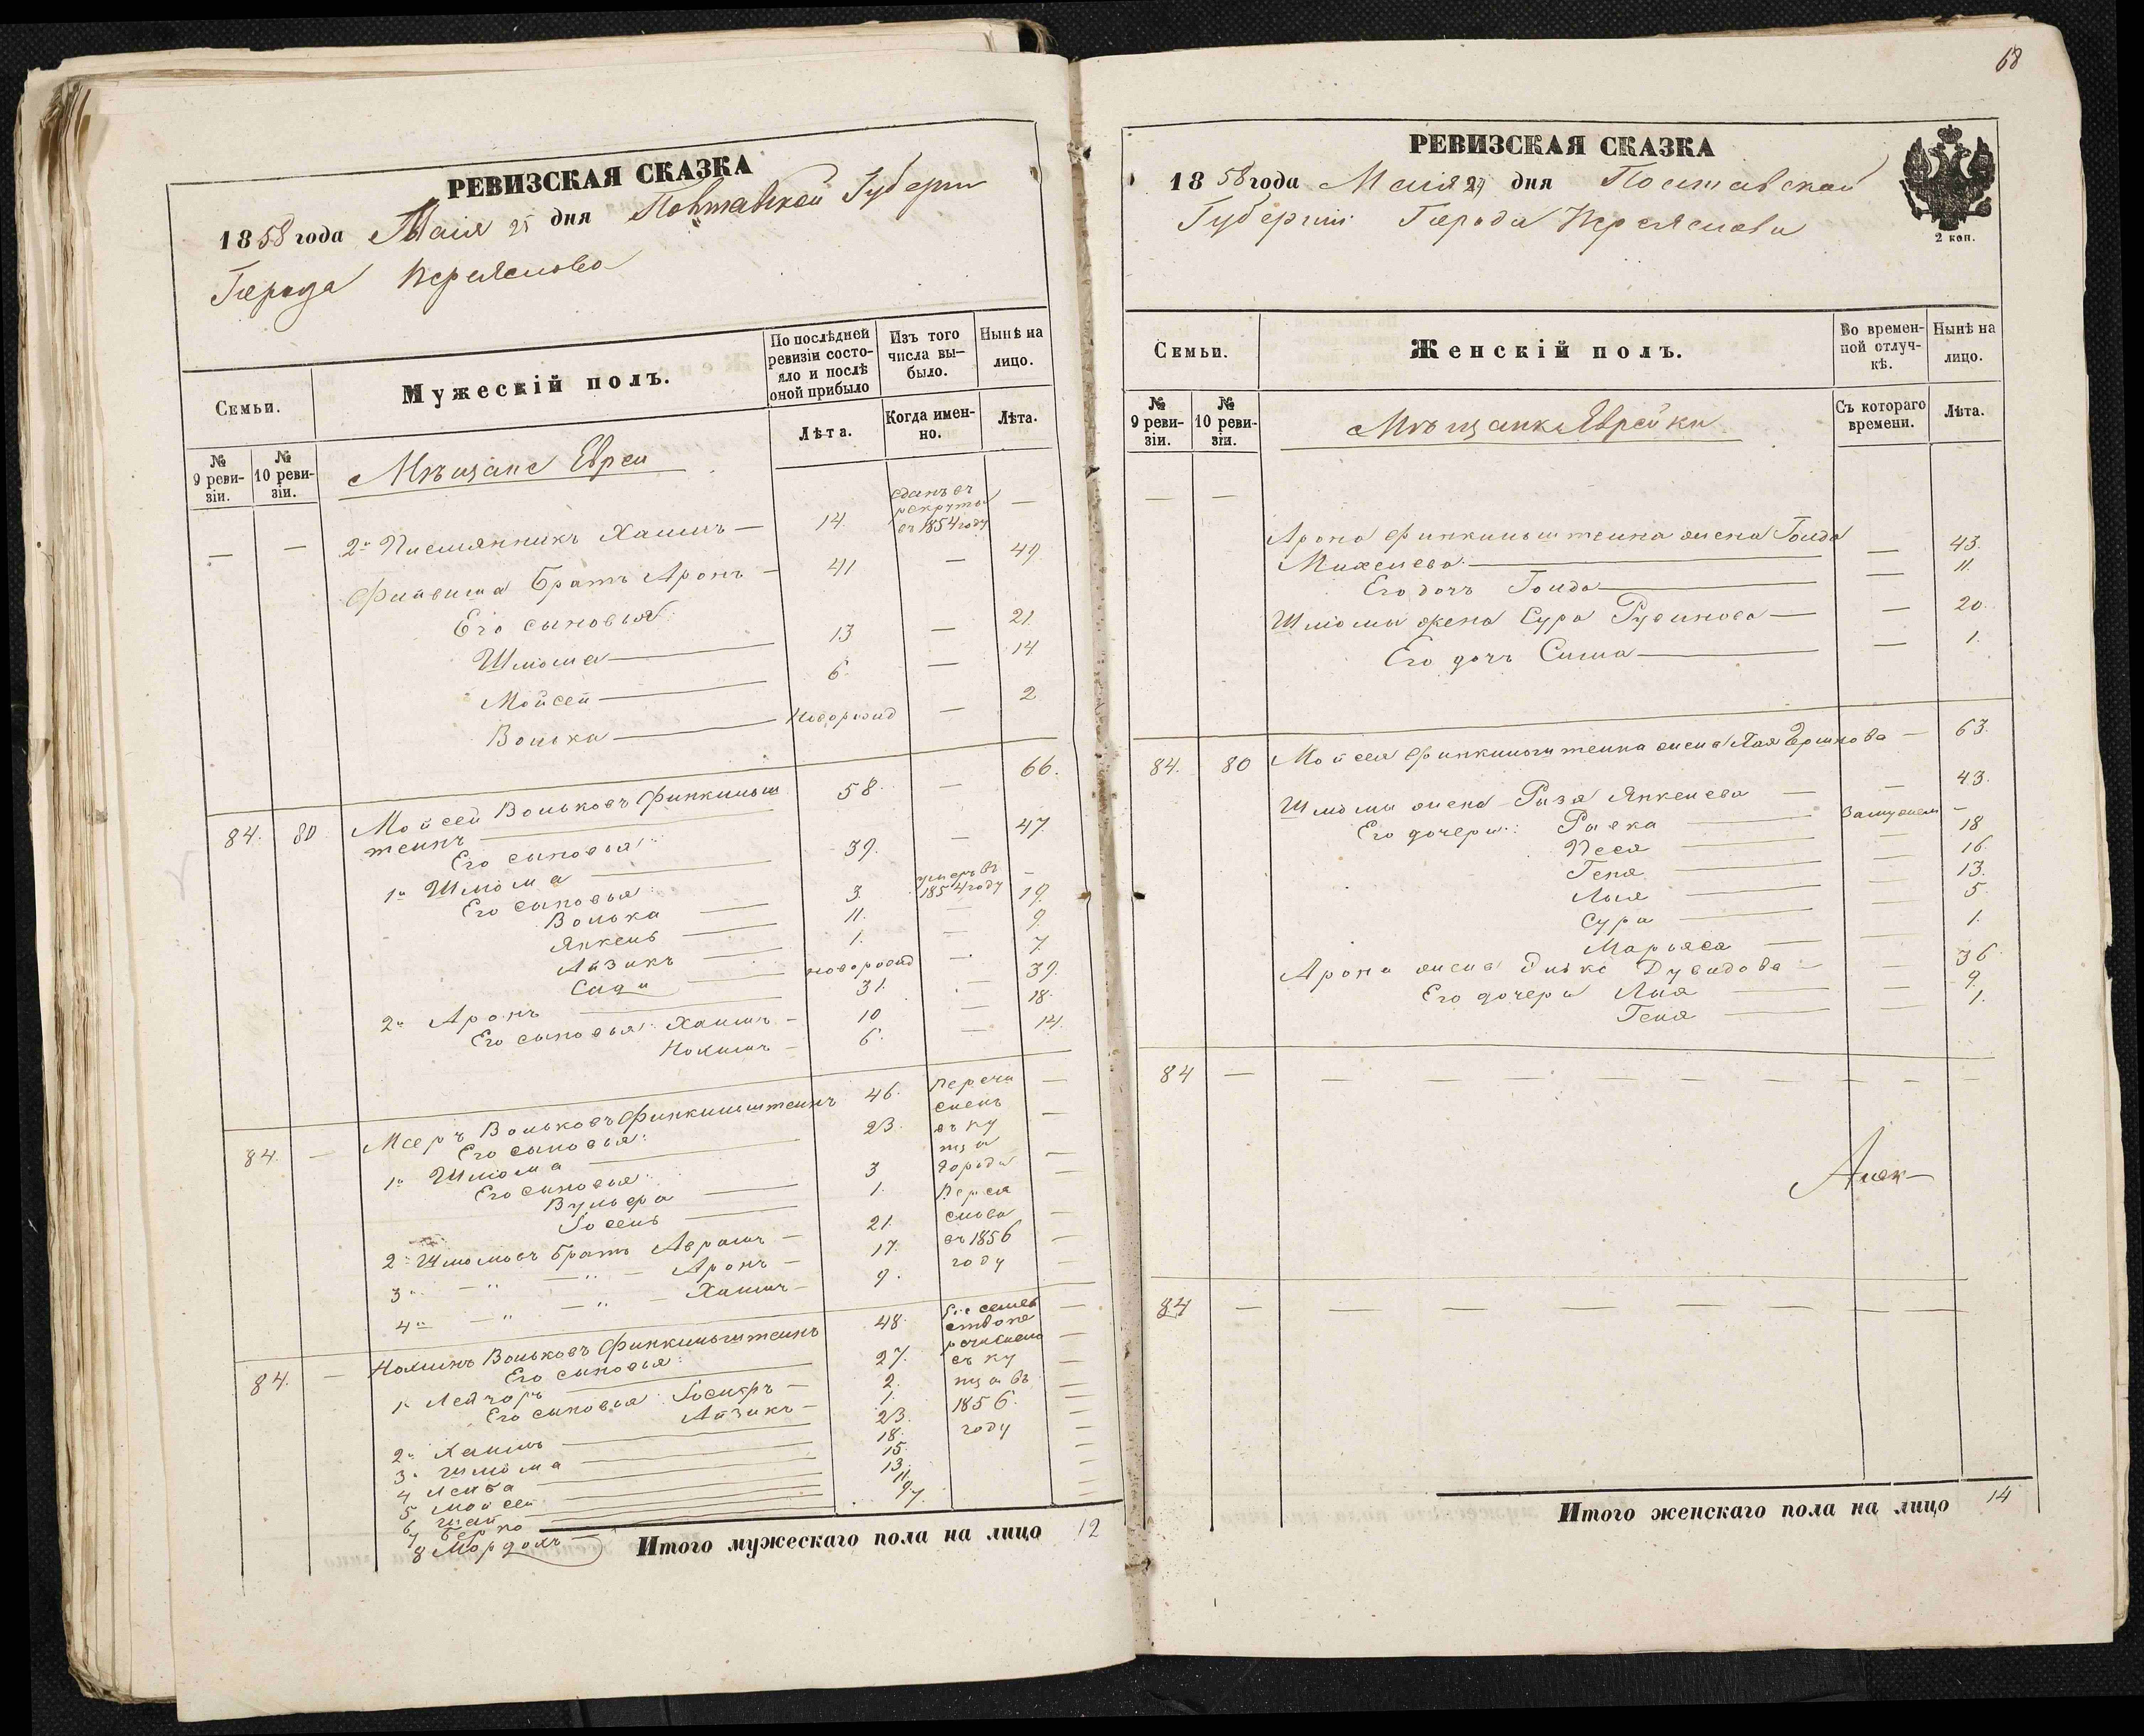 РЕВИЗСКАЯ СКАЗКА
18 58 года Маія 25 дня Полтавской Губерни
Города Переяслова
Семьи.
Мужескій полъ.
По послѣдней ревизіи состояло и послѣ оной прибыло
Изъ того числа выбыло.
Нынѣ на лицо.
№ 9 ревизіи.
№ 10 ревизіи.
Мѣщане Евреи
Лѣта.
Когда именно.
Лѣта.
— — 2й Племянникъ Хаимъ — 14. сданъ въ рекруты въ 1854 году —
Файвиша братъ Аронъ — 41 — 49
Его сыновья:
Шлома — 13 — 21
Мойсей — 6. — 14
Волька — новорожд — 2
84. 80 Мойсей Вольковъ Финкильштеинъ 58. — 66.
Его сыновья:
1й Шлома — 39. — 47
Его сыновья:
Волька — 3. умеръ въ 1854 году —
Янкель — 11. — 19.
Айзикъ — 1. — 9
новорожд — 7
2й Аронъ — 31. — 39.
Его сыновья: Хаимъ — 10 — 18.
Нохимъ — 6. — 14.
84. — Мееръ Вольковъ Финкильштеинъ 46. перечисленъ въ купца города Переяслова въ 1856 году —
Его сыновья:
1й Шлома — 23. —
Его сыновья:
Вульфа — 3 —
Іосель — 1. —
2й Шломовъ братъ Аврамъ — 21. —
3й — " — " — Аронъ — 17. —
4й — " — " — Хаимъ — 9. —
84. — Нохимъ Вольковъ Финкильштеинъ 48. семейство перечислено въ купца въ 1856. году —
Его сыновья:
1й Лейзоръ — 27. —
Его сыновья: Іосифъ — 2. —
Айзикъ — 1. —
2й Хаимъ — 23. —
3й Шлома — 18. —
4 Лейба — 15. —
5 Мойсей — 13. —
6 11. —
7 Берко — 9 —
8 Мордохъ 7. —
Итого мужескаго пола на лицо 12
68
РЕВИЗСКАЯ СКАЗКА
18 58 года Маія 25 дня Полтавской
Губерніи Города Переяслова
2 коп.
Семьи.
Женскій полъ.
Во временной отлучкѣ.
Нынѣ на лицо.
№ 9 ревизіи.
№ 10 ревизіи.
Мѣщанки Еврейки
Съ котораго времени.
Лѣта.
— — Арона Финкильштеина жена Голда
Михелева — — 43.
Его дочь Голда — — 11.
Шломы жена Сура Рувинова — — 20.
Его дочь Сима — — 1.
84. 80 Мойсея Финкильштеина жена Хая Гершкова — 63.
Шломы жена Райзя Янкелева — — 43.
Его дочери: Рывка — замужем —
Песя — — 18
Геня — — 16.
Лыя — — 13.
Сура — — 5.
Марьяся — — 1.
Арона жена Элька Дувидова — — 36
Его дочери Лыя — — 9.
Геня — — 1.
84 — — — — — — — — —
Алек-
84 — — — — — — — —
Итого женскаго пола на лицо 14